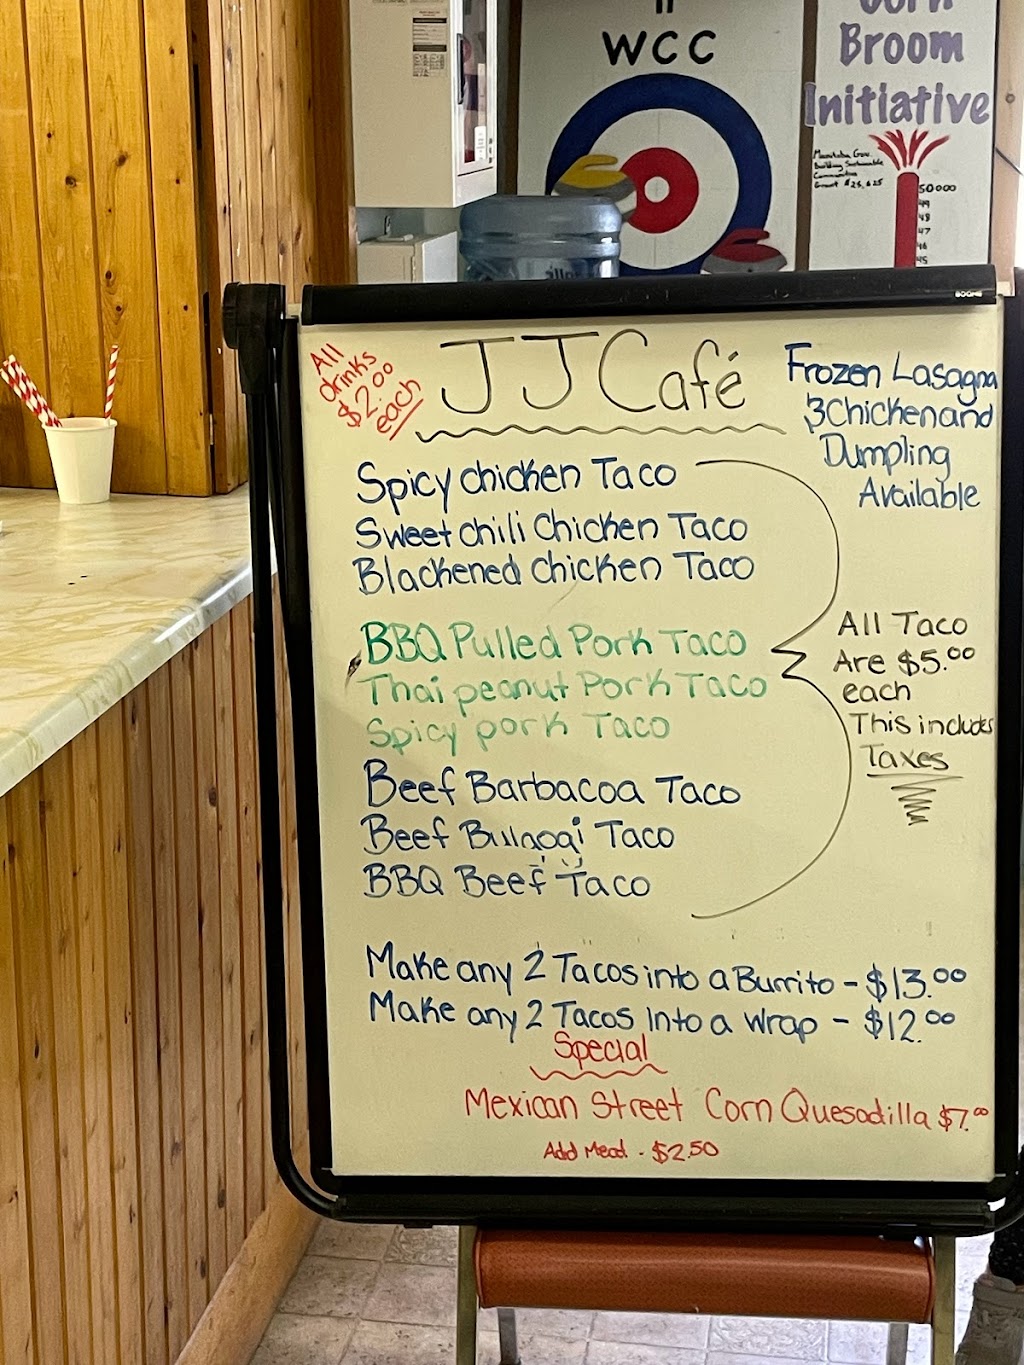 WCC
Corn
Broom
Initiative
Manitoba Gov.
Building Sustainable
Communities
Grant $25,625
50000
49
48
47
46
45
BOONE
All
drinks
$2.00
each
JJ Café
Frozen Lasagna
& Chicken and
Dumpling
Available
Spicy chicken Taco
Sweet chili Chicken Taco
Blackened chicken Taco
BBQ Pulled Pork Taco
Thai peanut Pork Taco
Spicy pork Taco
Beef Barbacoa Taco
Beef Bulgogi Taco
BBQ Beef Taco
All Taco
Are $5.00
each
This includes
Taxes
Make any 2 Tacos into a Burrito - $13.00
Make any 2 Tacos Into a wrap - $12.00
Special
Mexican Street Corn Quesadilla $7.00
Add Meat - $2.50